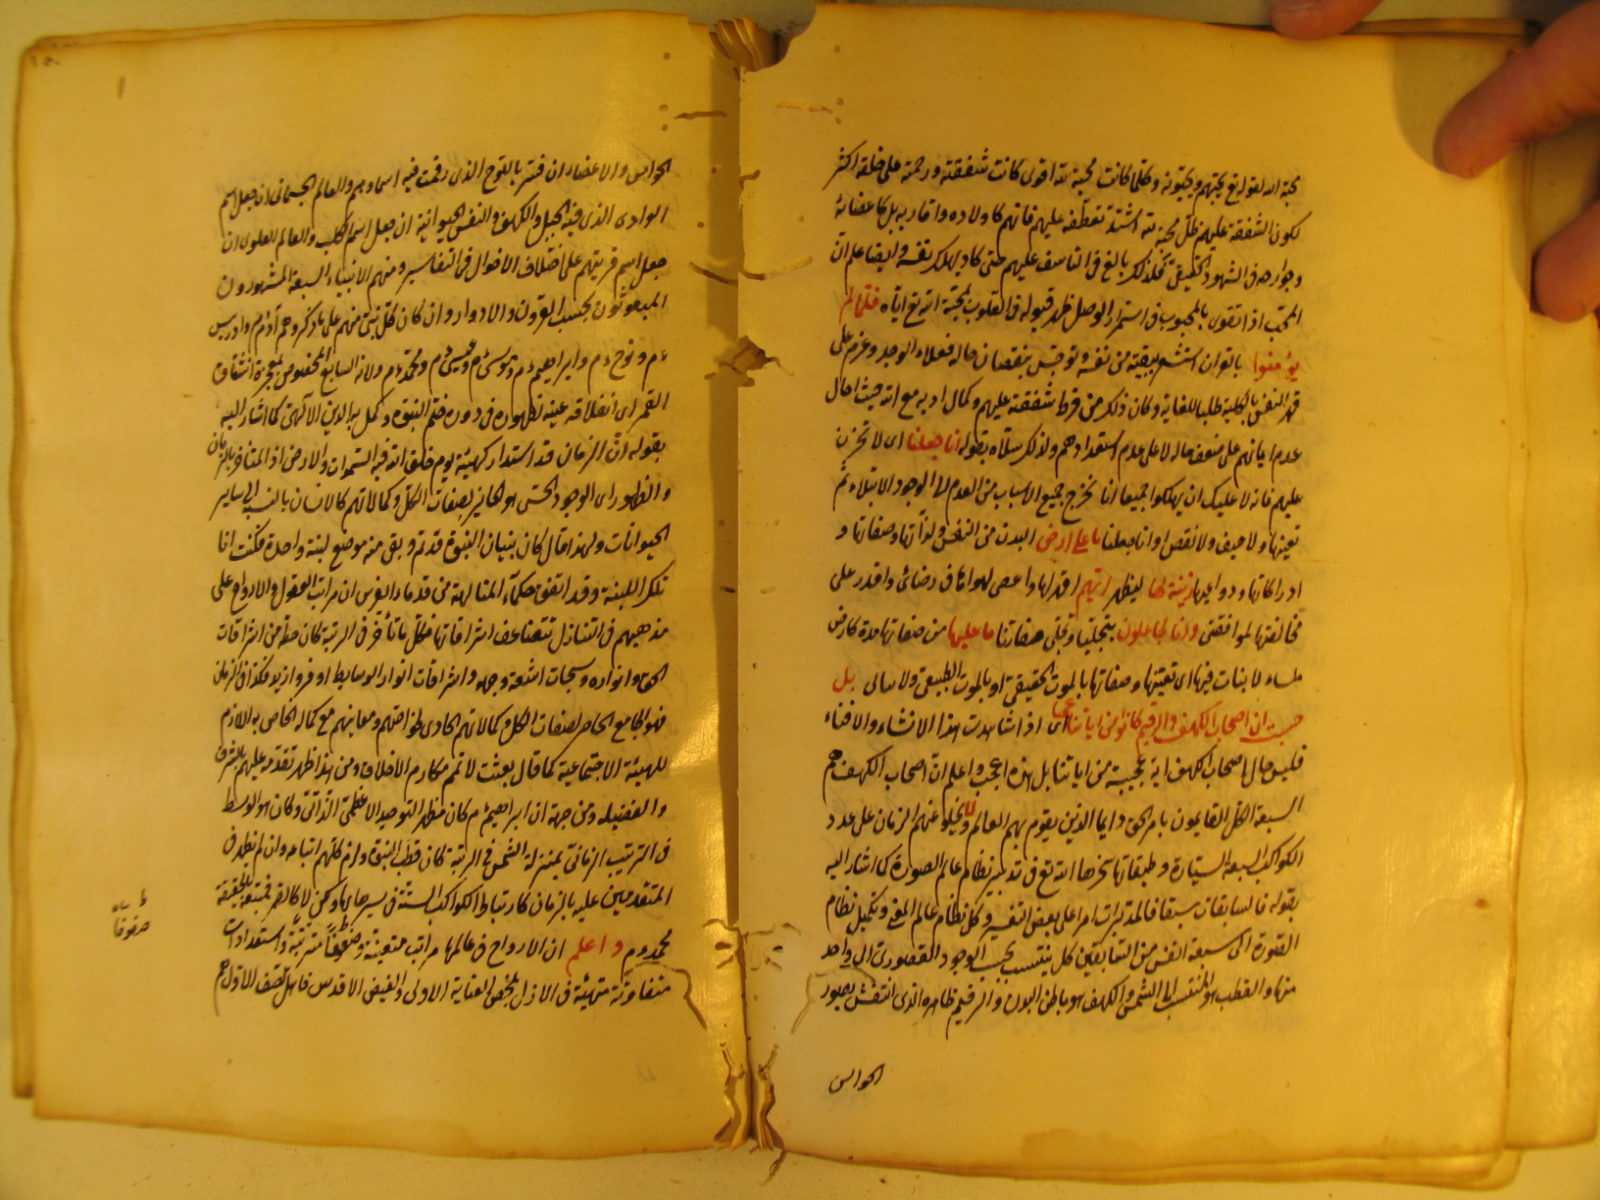 محبة الله لقوله تع يحبهم ويحبونه وكلما كانت محبته لله اقوى كانت شفقته ورحمته على خلقه اكثر
لكون الشفقة عليهم ظل محبته لله اشتد تعطفه عليهم فانهم كاولاده واقاربه بل كاعضائه
وجوارحه فى الشهود الحقيقى فلذلك بالغ فى التاسف عليهم حتى كاد يهلك نفسه وايضا علم ان
المحب اذا تقوى بالمحبوب فى استمرار الوصل ظهر قبوله فى القلوب لمحبة الله تع اياه فلما لم
يؤمنوا بالقران استشعر ببقية من نفسه وتوجس بنقصان حاله فعلاه الوجد وعزم على
قهر النفس بالكلية طلبا للغاية وكان ذلك من فرط شفقته عليهم وكمال ادبه مع الله حيث احال
عدم ايمانهم على ضعف حاله لا على عدم استعدادهم ولذلك سلاه بقوله انا جعلنا اى لا تحزن
عليهم فانه لا عليك ان يهلكوا جميعا انا نخرج جميع الاسباب من العدم الى الوجود الابتلاء ثم
نفنيها ولا حيف ولا نقص او انا جعلنا ما على ارض البدن من النفس ولذاتها وصفاتها و
ادراكاتها ودواعيها زينة لها ليظهر ايهم اقدر لها واعصى لهواها فى رضائى واقدر على
مخالفتها لموافقتى وانا لجاعلون بتجلينا وتجلى صفاتنا ما عليها من صفاتها هامدة كارض
ملساء لا نبات فيها اى نفنيها وصفاتها بالموت الحقيقى او بالموت الطبيعى ولا نبالى بل
حسبت ان اصحاب الكهف والرقيم كانوا من اياتنا عجبا اى اذا شاهدت هذا الانشاء والافناء
فليس حال اصحاب الكهف اية عجيبة من اياتنا بل هذه اعجب واعلم ان اصحاب الكهف هم
السبعة الكل القايمون بامر الحق دايما الذين يقوم بهم العالم ولا يخلو عنهم الزمان على عدد
الكواكب السبعة السيارة وطبقاتها سخرها الله تع فى تدبير نظام عالم الصورة كما اشار اليه
بقوله فالسابقات سبقا فالمدبرات امرا على بعض التفسير وكل نظام عالم المعنى وتكميل نظام
الصورة الى سبعة انفس من السابقين كل ينتسب بحسب الوجود الصورى الى واحد
منها والقطب هو المنتسب الى الشمس والكهف هو باطن البدن والرقيم ظاهره الذى انتقش بصور
الحواس
الحواس والاعضاء ان فسر باللوح الذى رقمت فيه اسماوهم والعالم الجسمانى ان جعل اسم
الوادى الذى فيه الجبل والكهف والنفس الحيوانية ان جعل اسم الكلب والعالم العلوى ان
جعل اسم قريتهم على اختلاف الاقوال فى التفاسير ومنهم الانبياء السبعة المشهورون
المبعوثون بحسب القرون والادوار وان كان كل نبى منهم على ما ذكر وهم ادم ءم وادريس
ءم ونوح ءم وابراهيم ءم وموسى ءم وعيسى ءم ومحمد ءم ولانه السابع المخصوص بمعجزة انشقاق
القمر اى انفلاقه عنه لظهوره فى دورة ختم النبوة وكمل به الدين الالهى كما اشار اليه
بقوله ان الزمان قد استدار كهيئة يوم خلق الله فيه السموات والارض اذ المتاخر بالزمان
والظهور اى الوجود الحسى هو الحايز لصفات الكل وكمالاتهم كالانسان بالنسبة الى ساير
الحيوانات ولهذا قال كان بنيان النبوة قد تم وبقى منه موضع لبنة واحدة فكنت انا
تلك اللبنة وقد اتفق حكماء المتالهة من قدماء الفرس ان مراتب العقول والارواح على
مذهبهم فى التنازل تتضاعف اشراقاتها فكل ما تاخر فى الرتبة كان حظه من اشراقات
الحق وانواره وسبحات اشعة وجهه واشراقات انوار الوسايط اوفر وازيد فكذا فى الزمان
فهو الجامع الحاصر لصفات الكل وكمالاتهم الحاوى لخواصهم ومعانيهم مع كماله الخاص به اللازم
للهيئة الاجتماعية كما قال بعثت لاتمم مكارم الاخلاق ومن هذا ظهر تقدمه عليهم بالشرف
والفضيلة ومن جهة ان ابراهيم ءم كان مظهر التوحيد الاعظمى الذاتى وكان هو الوسط
فى الترتيب الزمانى بمنزلة الشمس فى الرتبة كان قطب النبوة ولزم كلهم اتباعه وان لم يظهر فى
المتقدمين عليه بالزمان كارتباط الكواكب الستة فى سيرها بها ولكن لا كالقمر فمتبعه بالحقيقة
محمد ءم واعلم ان الارواح فى عالمها مراتب متعينة وصفوفا مترتبة واستعدادات
متفاوتة متهيئة فى الازل بمحض العناية الاولى والفيض الاقدس فاهل الصف الاول هم
صفوفا